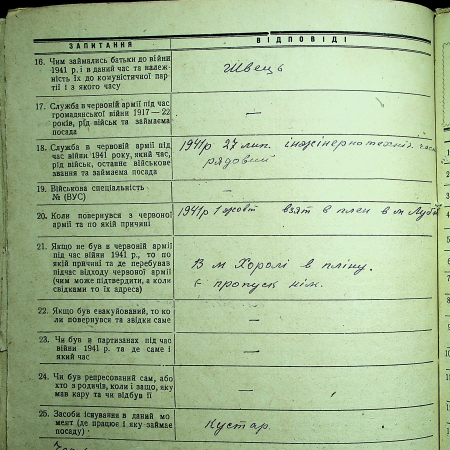 ЗАПИТАННЯ
ВІДПОВІДІ
16. Чим займались батьки до війни
1941 р. і в даний час та належ-
ність їх до комуністичної пар-
тії і з якого часу
Швець
17. Служба в червоній армії під час
громадянської війни 1917—22
років, рід військ та займаєма
посада
—
18. Служба в червоній армії під
час війни 1941 року, який час,
рід військ, останнє військове
звання та займаєма посада
1941р 27 лип. інжінернотехніч. част
рядовий
19. Військова спеціальність
№ (ВУС)
—
20. Коли повернувся з червоної
армії та по якій причині
1941р 1 жовт взят в плен в м
21. Якщо не був в червоній армії
під час війни 1941 р., то по
якій причині та де перебував
підчас відходу червоної армії
(чим може підтвердити, а коли
свідками то їх адреса)
В м Хоролі в пліну.
є пропуск нім.
22. Якщо був евакуйований, то ко
ли повернувся та звідки саме
—
23. Чи був в партизанах під час
війни 1941 р. та де саме і
який час
—
24. Чи був репресований сам, або
хто з родичів, коли і защо, яку
мав кару та чи відбув її
—
25. Засоби існування в даний мо
мент (де працює і яку займає
посаду)
Кустар.